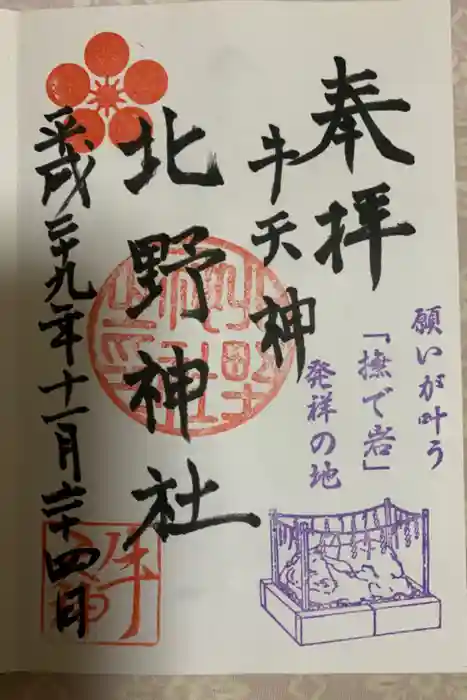 奉拝
願いが叶う
「撫で岩」
発祥の地
牛天神
北野神社
平成二十九年十一月二十四日